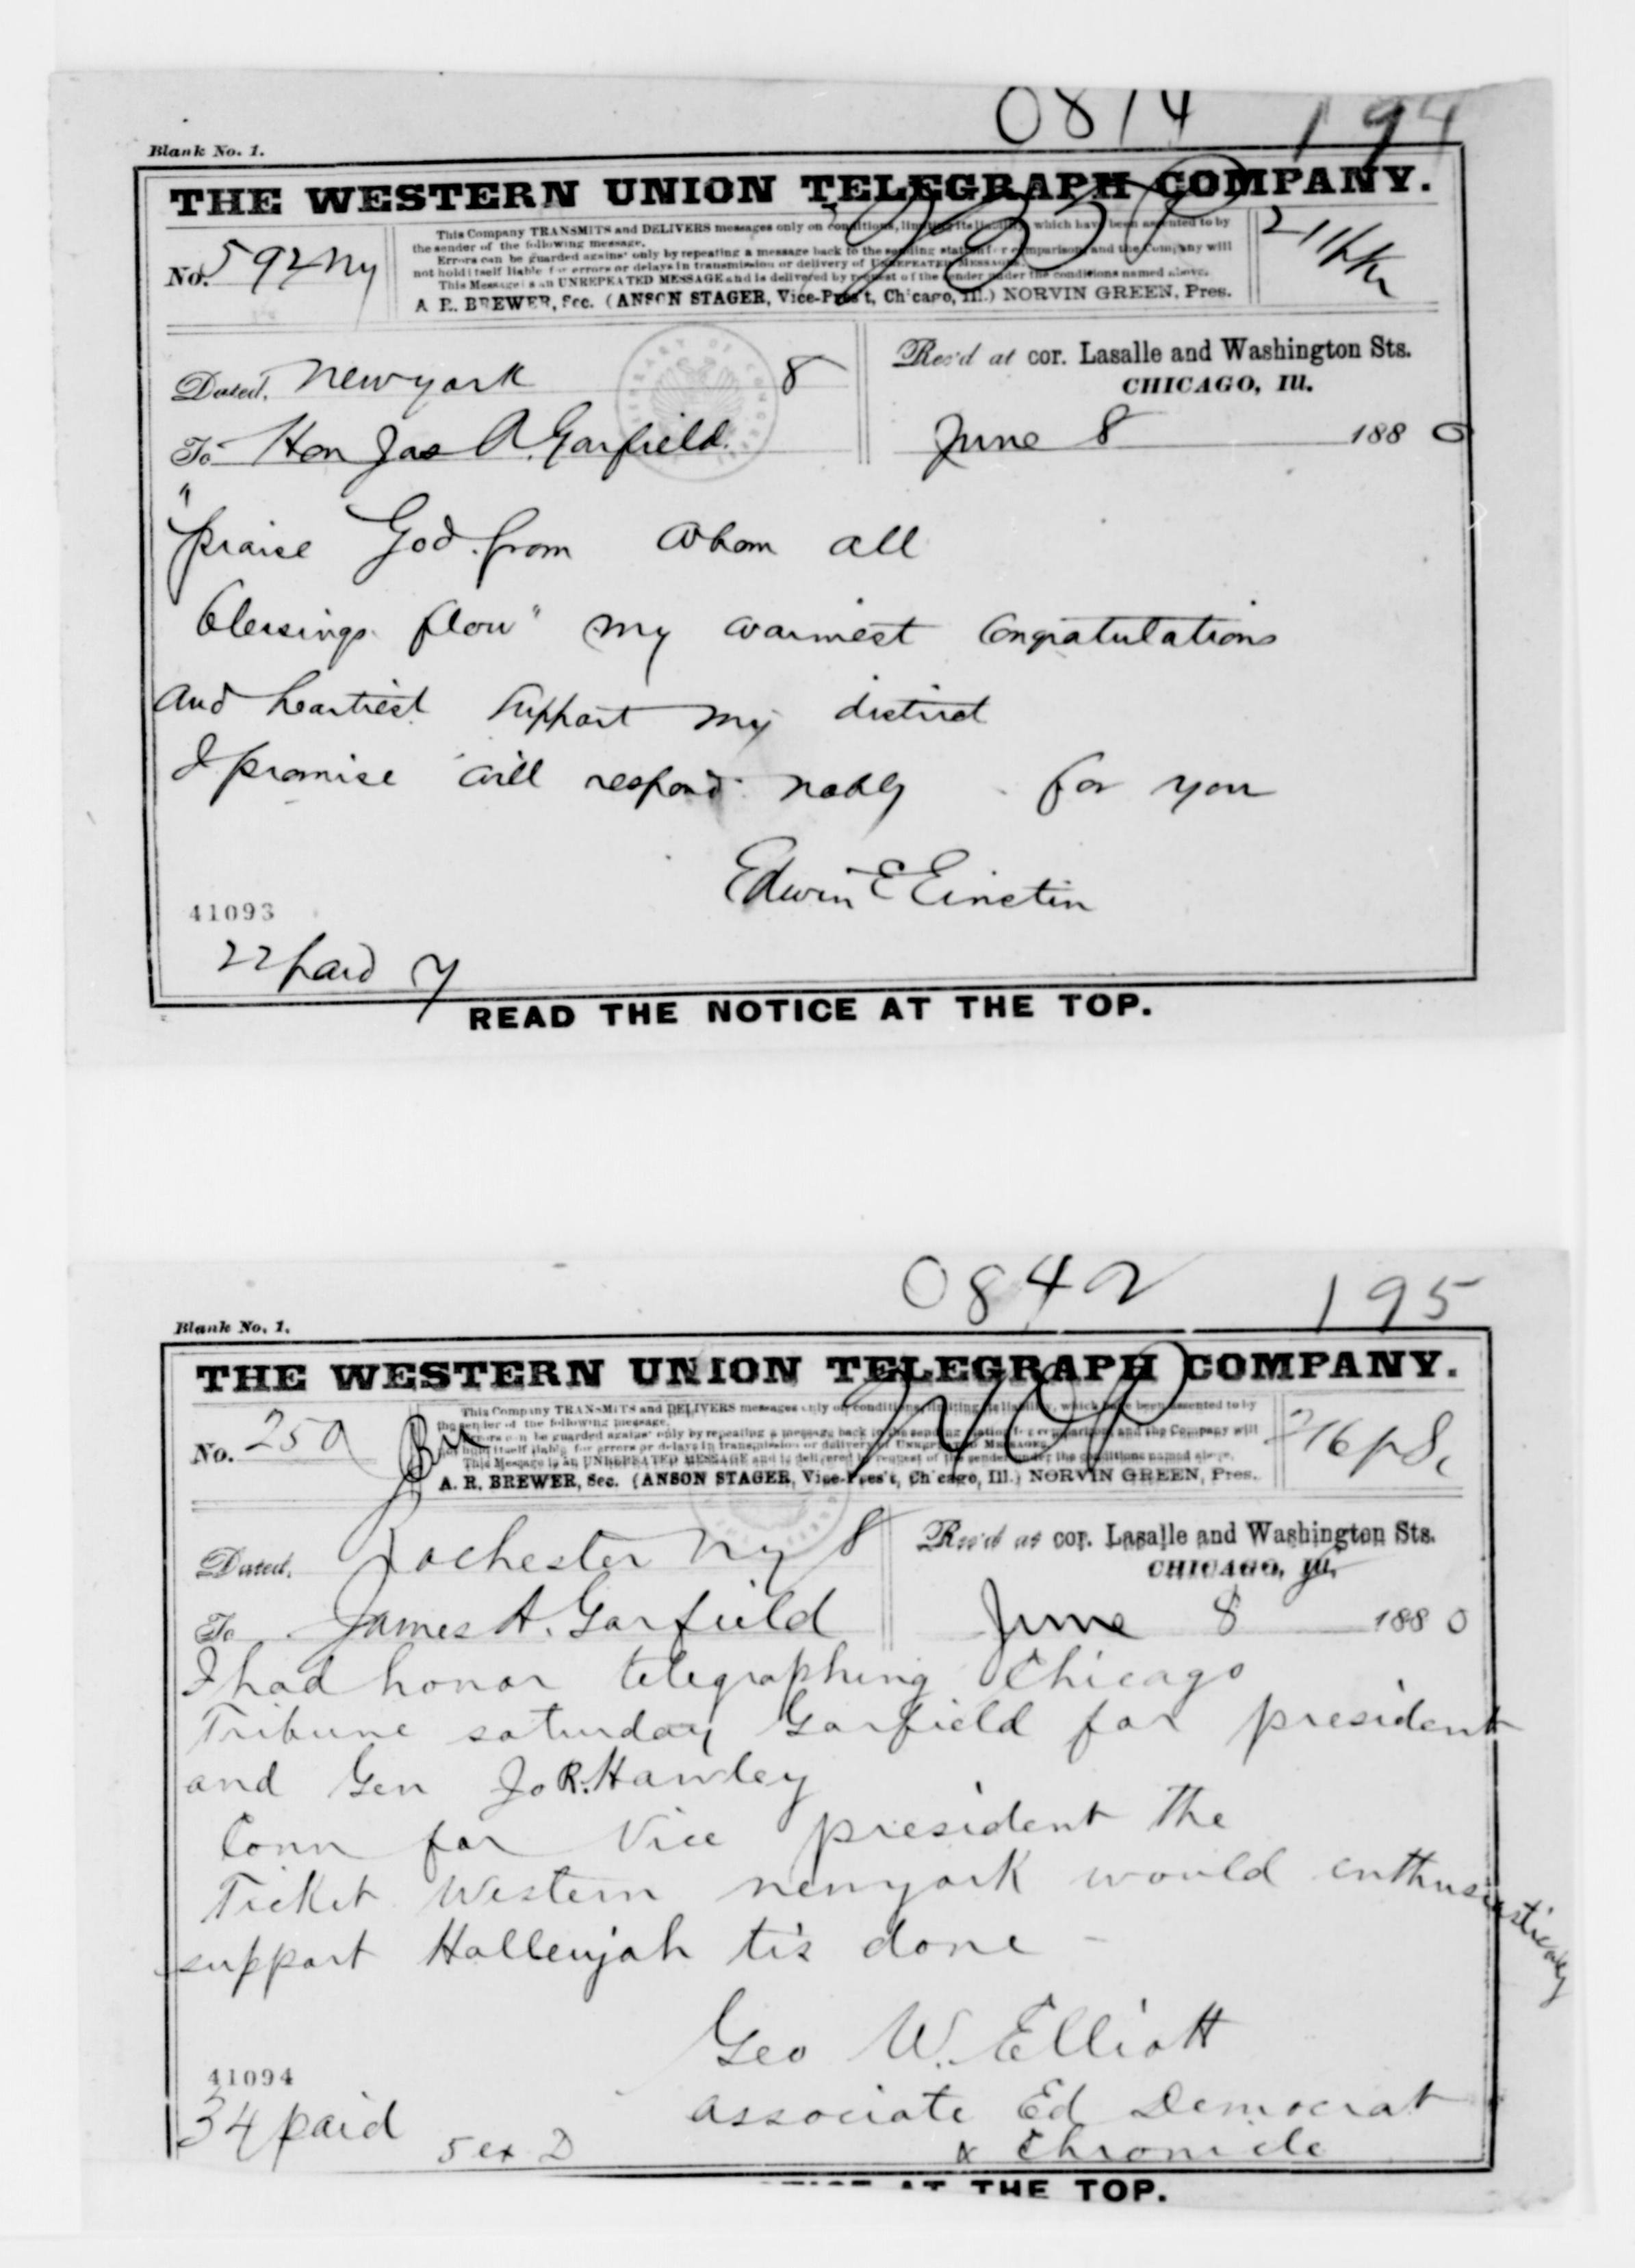 0814 194
Blank No. 1.
THE WESTERN UNION TELEGRAPH COMPANY.
No. 592 Ny
This Company TRANSMITS and DELIVERS messages only on conditions, limiting its liability, which have been assented to by
the sender of the following message.
Errors can be guarded against only by repeating a message back to the sending station for comparison, and the Company will
not hold itself liable for errors or delays in transmission or delivery of UNREPEATED MESSAGES.
This Message is an UNREPEATED MESSAGE and is delivered by request of the sender under the conditions named above.
A. R. BREWER, Sec. (ANSON STAGER, Vice-Pres't, Chicago, Ill.) NORVIN GREEN, Pres.
Dated, Newyork 8
Rec'd at cor. Lasalle and Washington Sts.
CHICAGO, Ill.
To Hon Jas A. Garfield.
June 8 1880
"praise God from whom all
blessings flow" my warmest congratulations
and heartiest support my district
I promise will respond nobly for you
Edwin E Einstin
41093
22 paid
READ THE NOTICE AT THE TOP.
0842 195
Blank No. 1.
THE WESTERN UNION TELEGRAPH COMPANY.
No. 250
This Company TRANSMITS and DELIVERS messages only on conditions, limiting its liability, which have been assented to by
the sender of the following message.
Errors can be guarded against only by repeating a message back to the sending station for comparison, and the Company will
not hold itself liable for errors or delays in transmission or delivery of UNREPEATED MESSAGES.
This Message is an UNREPEATED MESSAGE and is delivered by request of the sender under the conditions named above.
A. R. BREWER, Sec. (ANSON STAGER, Vice-Pres't, Chicago, Ill.) NORVIN GREEN, Pres.
Dated, Rochester Ny 8
Rec'd at cor. Lasalle and Washington Sts.
CHICAGO, Ill.
To James A. Garfield
June 8 1880
I had honor telegraphing Chicago
Tribune saturday Garfield for president
and Gen Jo R. Hawley
Conn for Vice president The
Ticket Western newyork would enthusiastically
support Halleujah tis done -
Geo W. Elliott
associate Ed Democrat
& Chronicle
41094
34 paid 5 ex D
AT THE TOP.